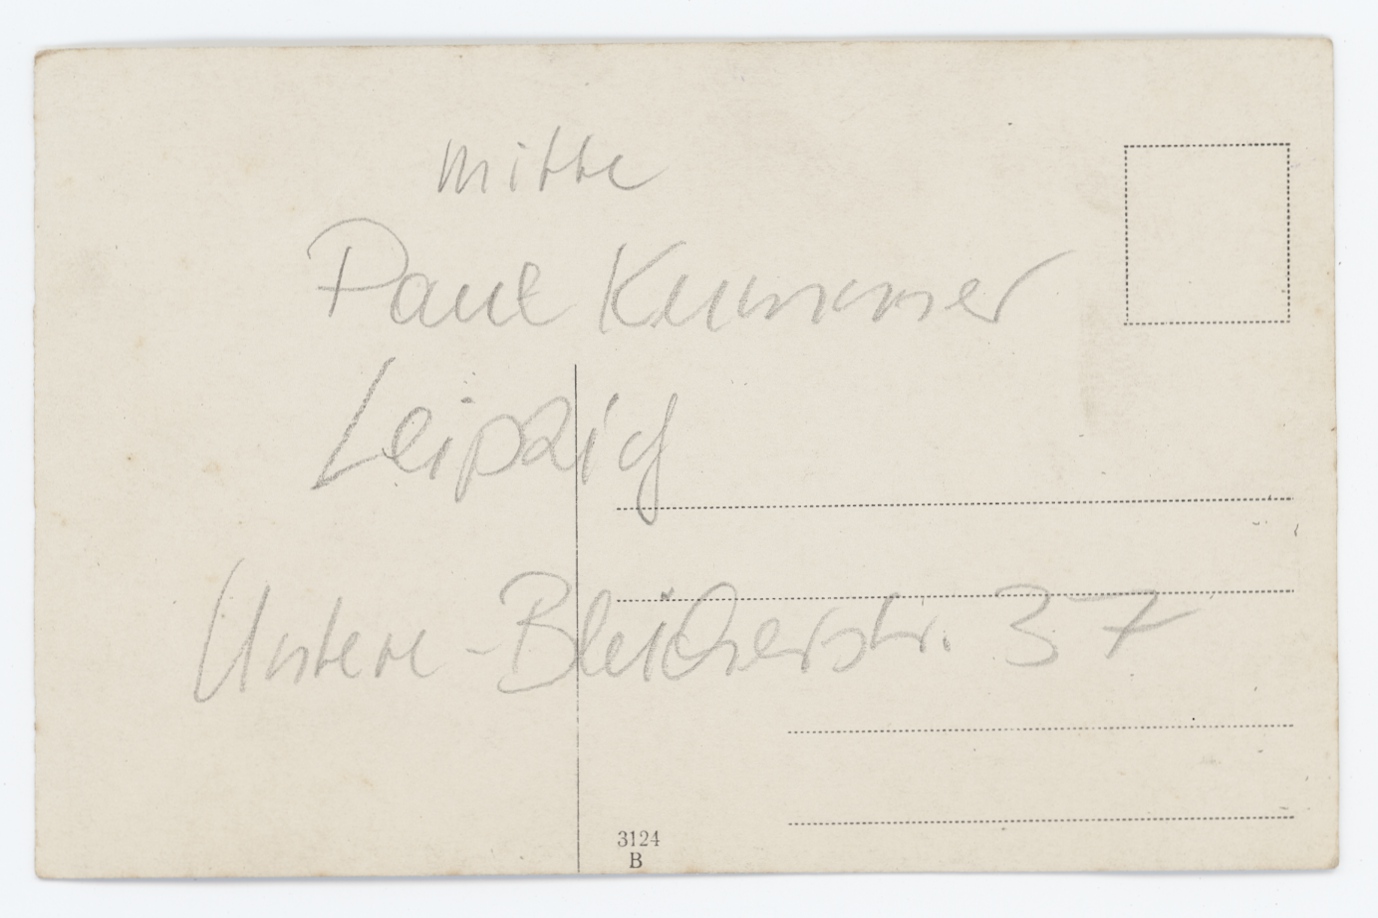 mitte
Paul Kummer
Leipzig
Untere-Bleicherstr. 37
3124
B